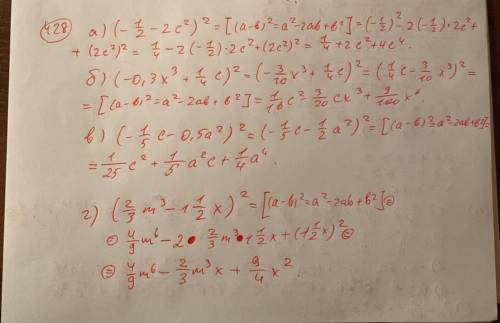 428 а) (-1/2 - 2c²)² = [(a-b)² = a² - 2ab + b²] = (-1/2)² - 2(-1/2)·2c² +
+ (2c²)² = 1/4 - 2(-1/2)·2c² + (2c²)² = 1/4 + 2c² + 4c⁴.
б) (-0,3x³ + 1/4 c)² = (-3/10 x³ + 1/4 c)² = (1/4 c - 3/10 x³)² =
= [(a-b)² = a² - 2ab + b²] = 1/16 c² - 3/20 cx³ + 9/100 x⁶
в) (-1/5 c - 0,5a²)² = (-1/5 c - 1/2 a²)² = [(a-b)² = a² - 2ab + b²] =
= 1/25 c² + 1/5 a²c + 1/4 a⁴.
г) (2/3 m³ - 1 1/2 x)² = [(a-b)² = a² - 2ab + b²] ⊜
⊜ 4/9 m⁶ - 2 · 2/3 m³ · 1 1/2 x + (1 1/2 x)² ⊜
⊜ 4/9 m⁶ - 2/3 m³x + 9/4 x².